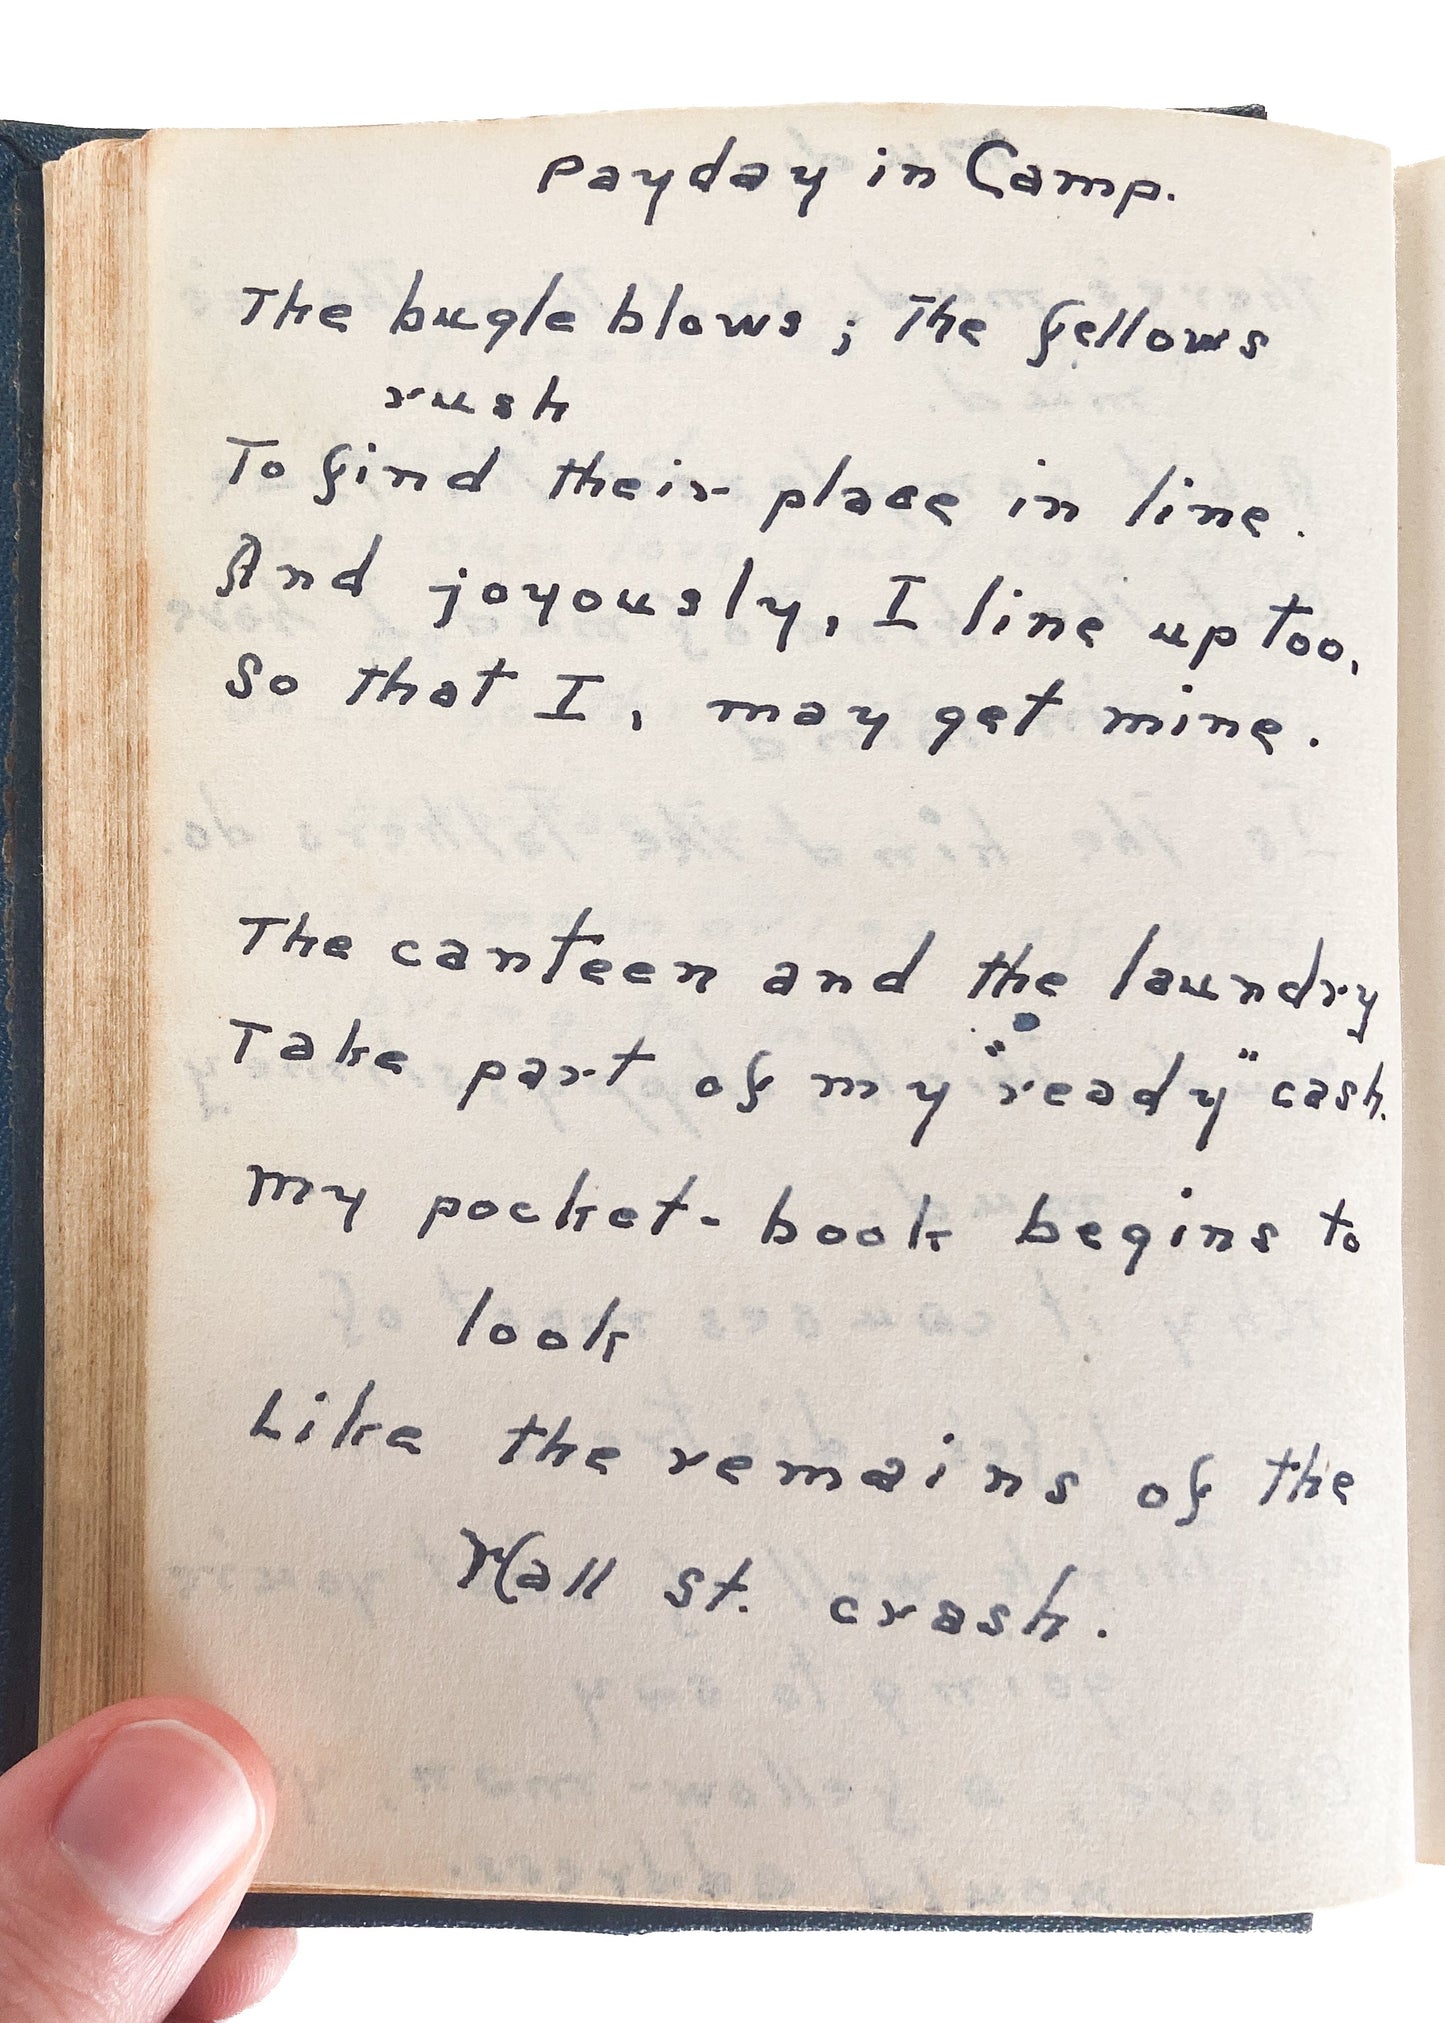 Payday in Camp.
The bugle blows ; The fellows
rush
To find their place in line.
And joyously, I line up too,
So that I, may get mine.
The canteen and the laundry
Take part of my "ready" cash.
My pocket-book begins to
look
Like the remains of the
Wall St. crash.